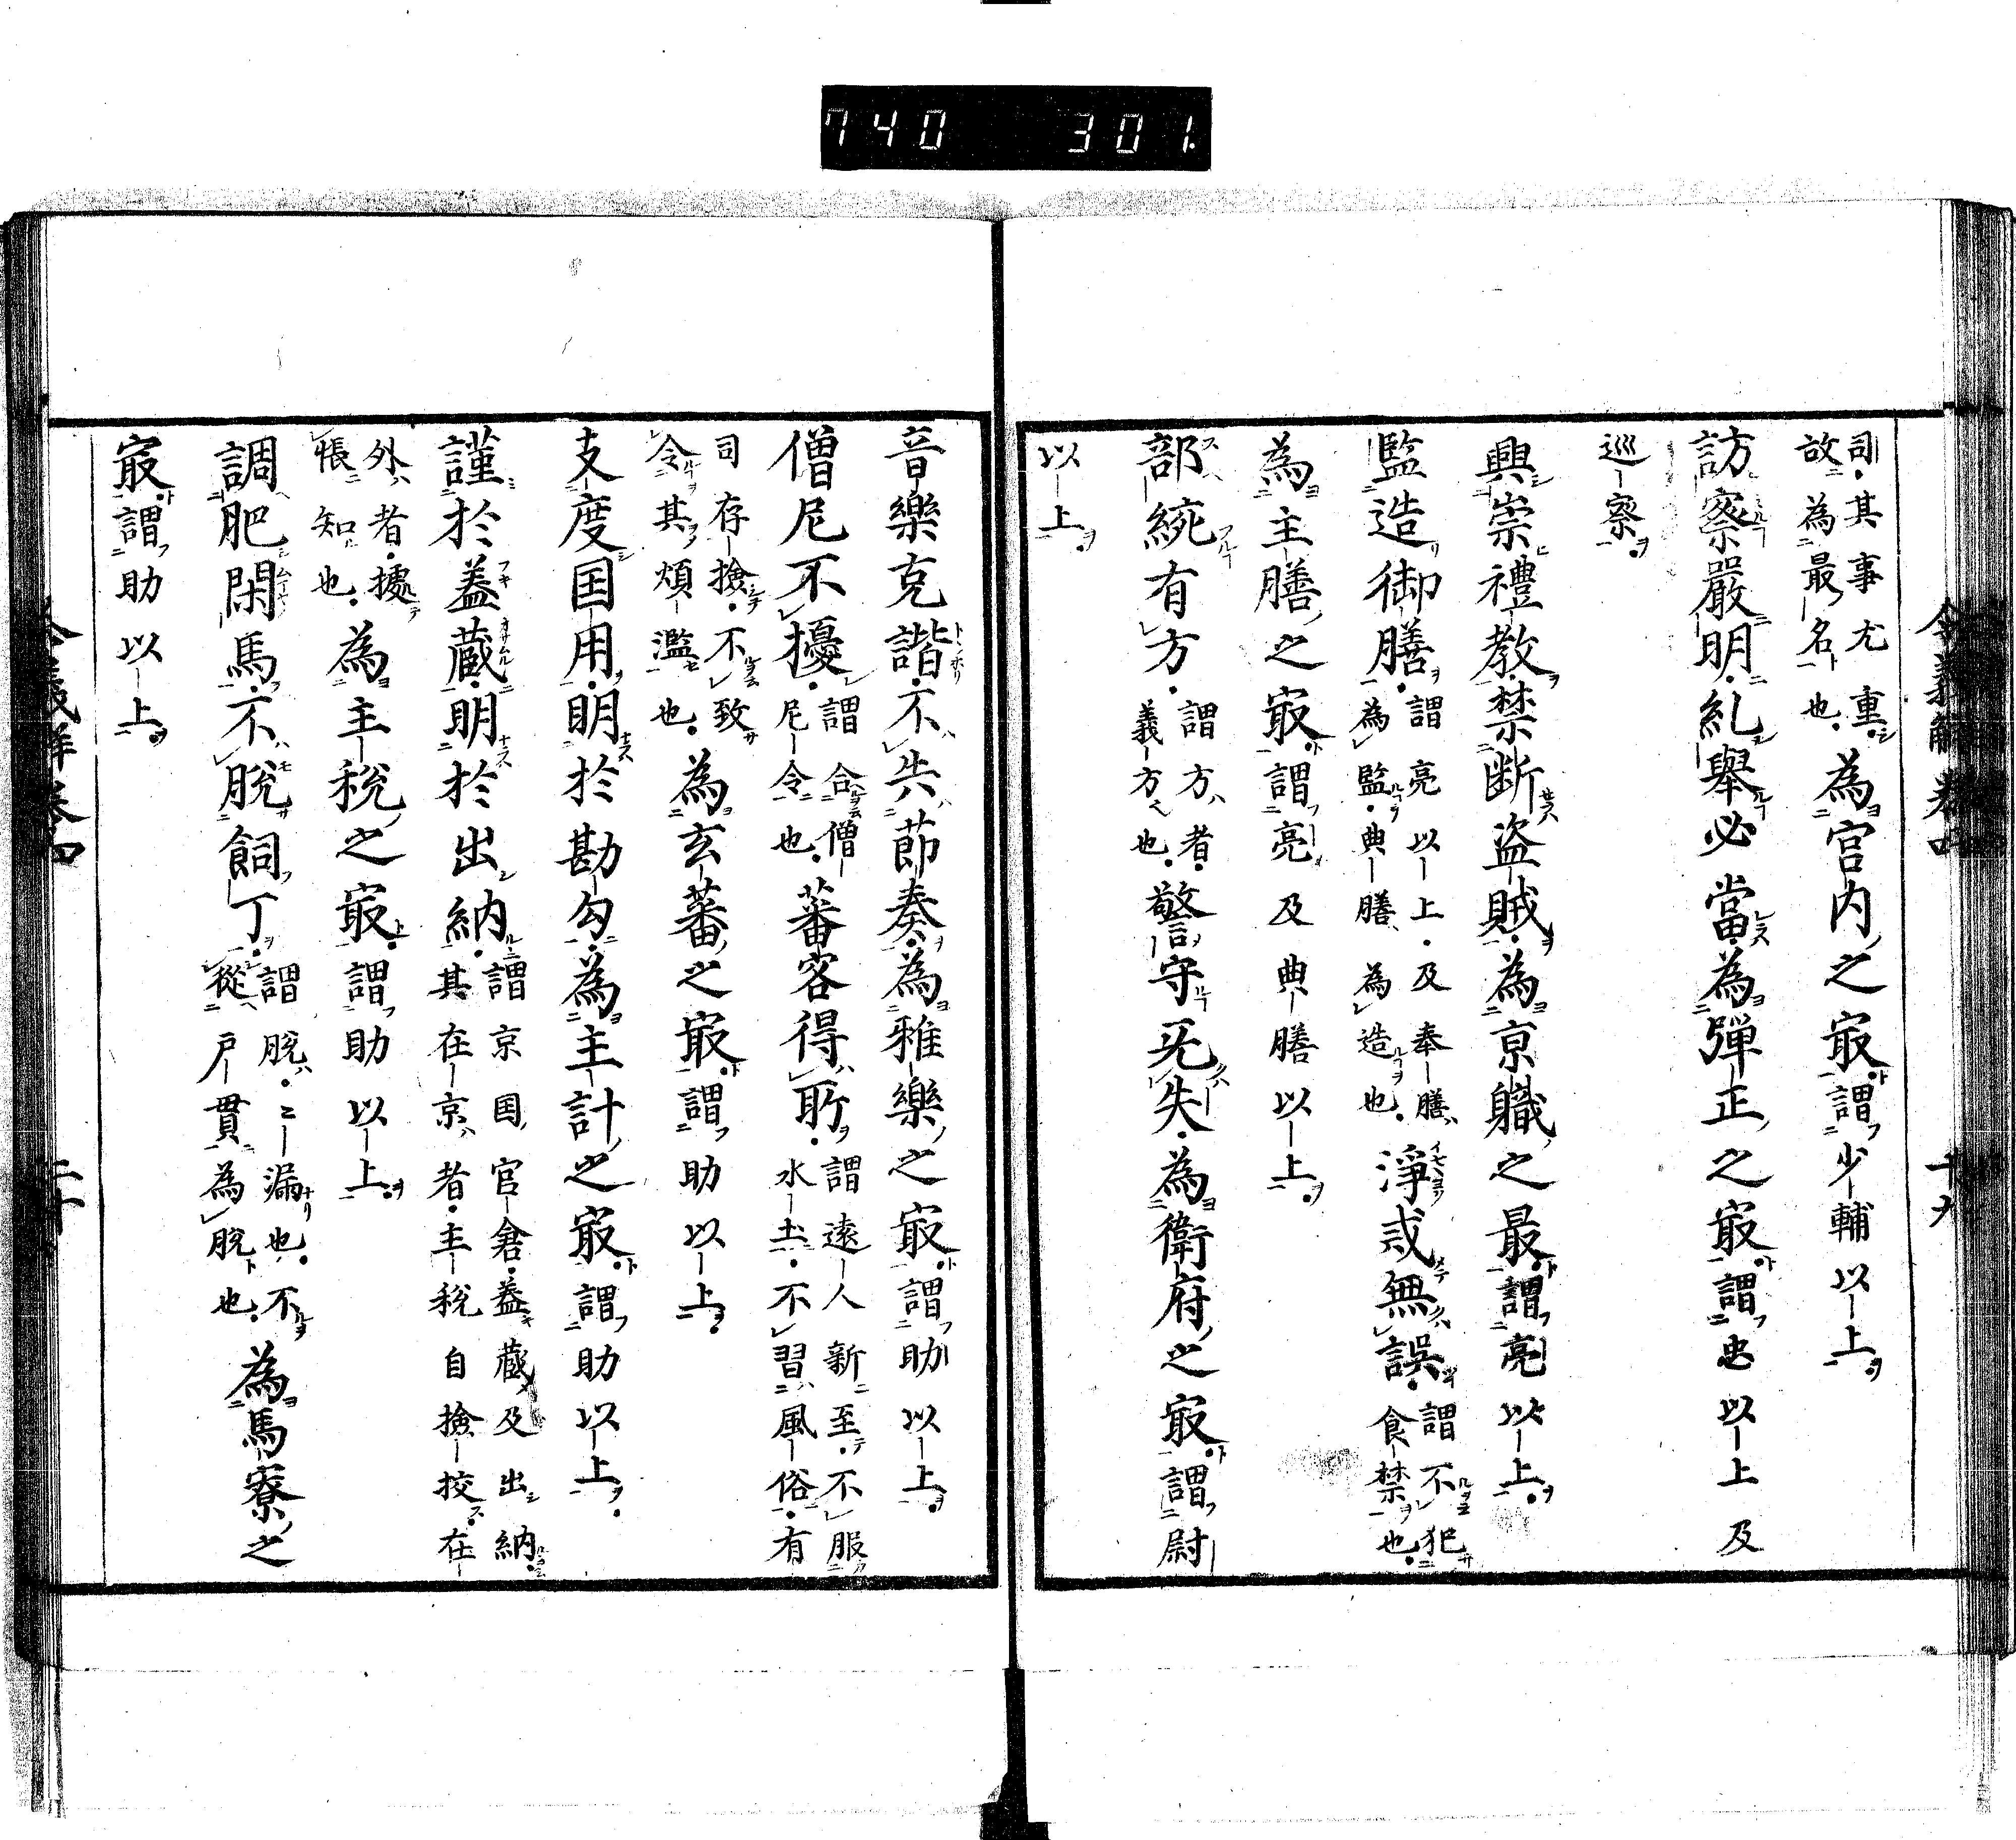 740 301.
司其事尤重
故為最名也為官内之㝡謂少輔以上
訪察嚴明糺舉必當為彈正之㝡謂忠以上及
巡察
興崇禮教禁断盗賊為京職之最謂亮以上
監造御膳謂亮以上及奉膳
為監典膳為造也淨戒無誤謂不犯
食禁也
為主膳之㝡謂亮及典膳以上
部統有方謂方者
義方也警守旡失為衛府之㝡謂尉
以上
音樂克諧不失節奏為雅樂之㝡謂助以上
僧尼不擾謂合僧
尼令也蕃客得所謂遠人新至不服
水土不習風俗有
司存撿不致
令其煩濫也為玄蕃之㝡謂助以上
支度国用明於勘勾為主計之㝡謂助以上
謹於蓋藏明於出納謂京国官倉蓋藏及出納
其在京者主税自撿挍在
外者據
帳知也為主税之㝡謂助以上
調肥閑馬不脱飼丁謂脱〻漏也不
從戸貫為脱也為馬寮之
㝡謂助以上